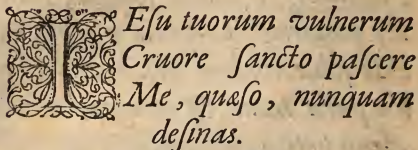 IEſu tuorum vulnerum
Cruore ſancto paſcere
Me, quæſo, nunquam
deſinas.